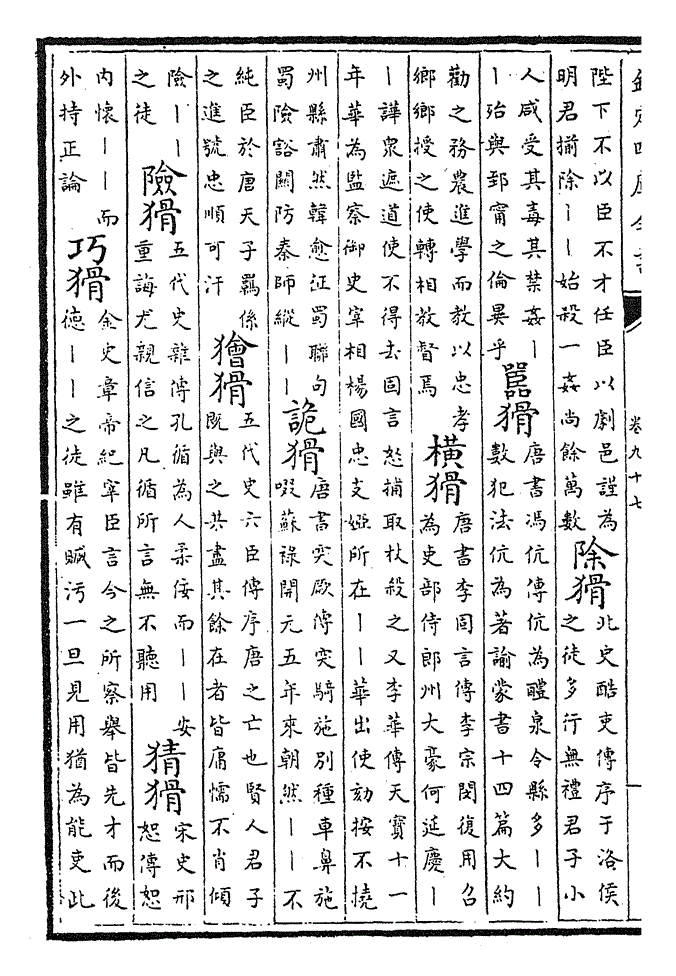 欽定四庫全書
卷九十七
陛下不以臣不才任臣以劇邑謹為
明君揃除丨丨始殺一姦尚餘萬數
除猾
北史酷吏傳序于洛侯
之徒多行無禮君子小
人咸受其毒其禁姦丨
丨殆與郅甯之倫異乎
嚚猾
唐書馮伉傳伉為醴泉令縣多丨丨
數犯法伉為著諭蒙書十四篇大約
勸之務農進學而教以忠孝
鄉鄉授之使轉相教督焉
橫猾
唐書李固言傳李宗閔復用召
為吏部侍郎州大豪何延慶丨
丨譁衆遮道使不得去固言怒捕取杖殺之又李華傳天寶十一
年華為監察御史宰相楊國忠支婭所在丨丨華出使劾按不撓
州縣肅然韓愈征蜀聯句
蜀險豁關防秦師縱丨丨
詭猾
唐書突厥傳突騎施別種車鼻施
啜蘇祿開元五年來朝然丨丨不
純臣於唐天子羈係
之進號忠順可汗
獪猾
五代史六臣傳序唐之亡也賢人君子
既與之共盡其餘在者皆庸懦不肖傾
險丨丨
之徒
險猾
五代史雜傳孔循為人柔佞而丨丨安
重誨尤親信之凡循所言無不聽用
猜猾
宋史邢
恕傳恕
內懷丨丨而
外持正論
巧猾
金史章帝紀宰臣言今之所察舉皆先才而後
德丨丨之徒雖有贓污一旦見用猶為能吏此